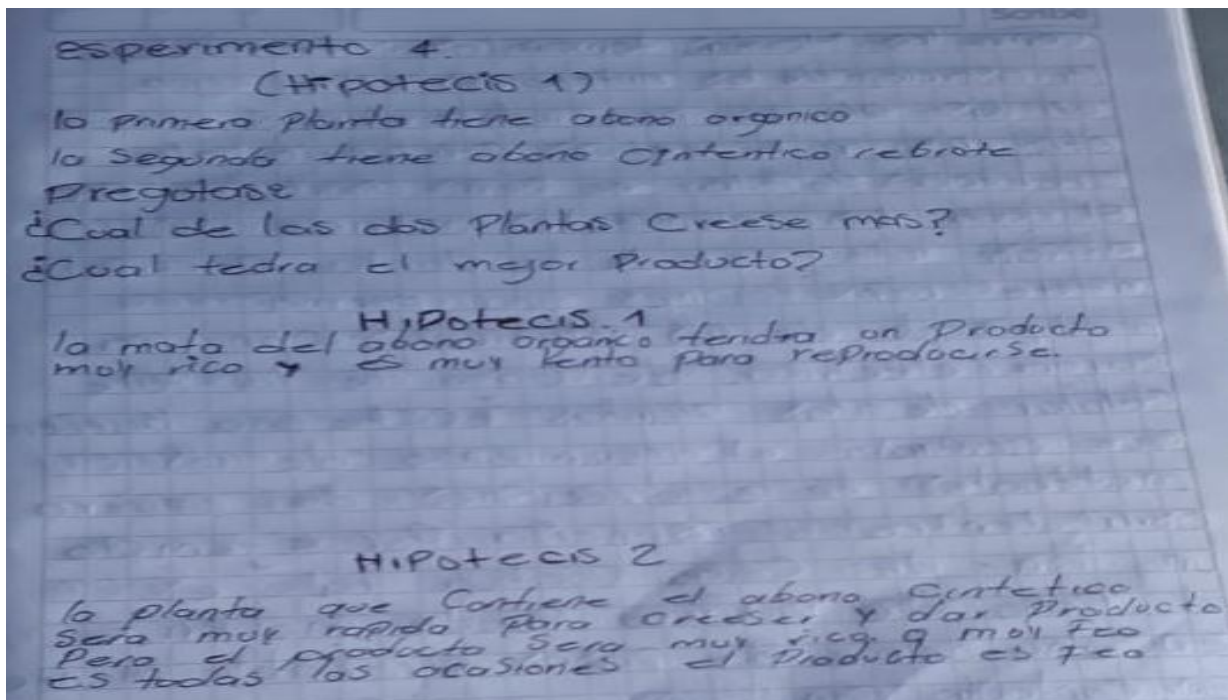 esperimento 4.
(Hipotecis 1)
la primera planta tiene abono organico
la Segunda tiene abono Cintentico rebrote
Pregotase
¿Cual de las dos Plantas Creese mas?
¿Cual tedra el mejor Producto?
Hipotecis. 1
la mata del abono organico tendra un Producto
muy rico y es muy lento para reproducirse.
Hipotecis 2
la planta que Contiene el abono Cintetico
Sera muy rapida Para creeser y dar Producto
Pero el producto Sera muy rico. o muy feo
es todas las ocasiones el Producto es feo